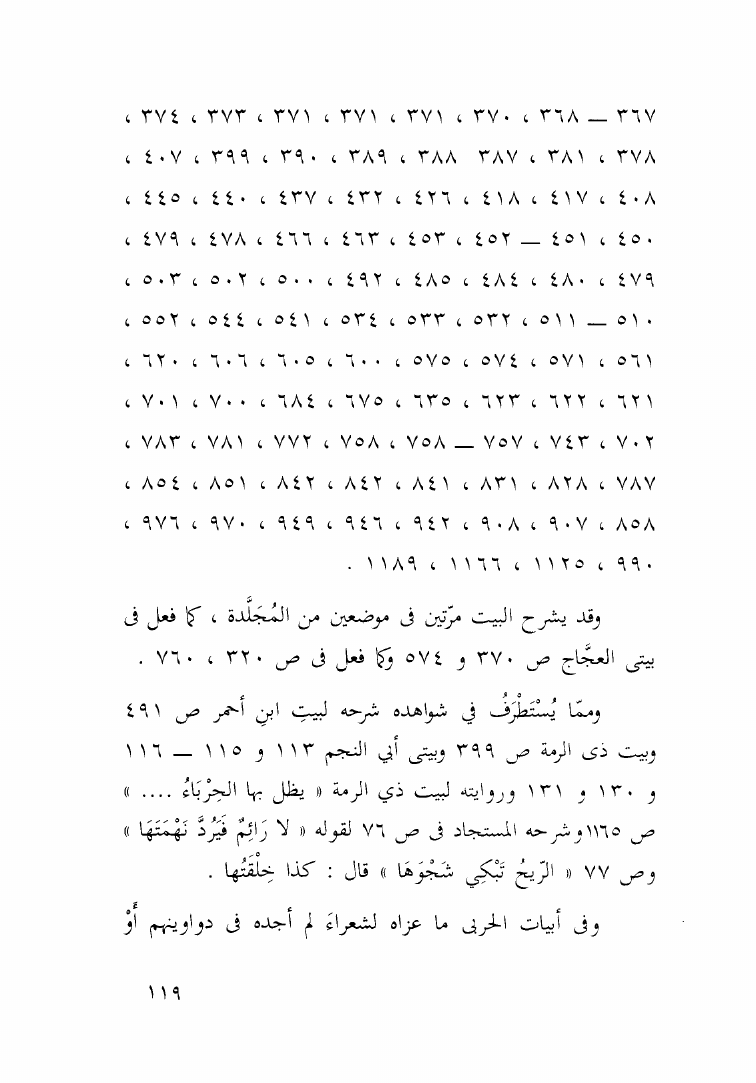 ٣٦٧ — ٣٦٨ ، ٣٧٠ ، ٣٧١ ، ٣٧١ ، ٣٧١ ، ٣٧٣ ، ٣٧٤ ،
٣٧٨ ، ٣٨١ ، ٣٨٧ ٣٨٨ ٣٨٨ ، ٣٨٩ ، ٣٩٠ ، ٣٩٩ ، ٤٠٧ ،
٤٠٨ ، ٤١٧ ، ٤١٨ ، ٤٢٦ ، ٤٣٢ ، ٤٣٧ ، ٤٤٠ ، ٤٤٥ ،
٤٥٠ ، ٤٥١ — ٤٥٢ ، ٤٥٣ ، ٤٦٣ ، ٤٦٦ ، ٤٧٨ ، ٤٧٩ ،
٤٧٩ ، ٤٨٠ ، ٤٨٤ ، ٤٨٥ ، ٤٩٢ ، ٥٠٠ ، ٥٠٢ ، ٥٠٣ ،
٥١٠ — ٥١١ ، ٥٣٢ ، ٥٣٣ ، ٥٣٤ ، ٥٤١ ، ٥٤٤ ، ٥٥٢ ،
٥٦١ ، ٥٧١ ، ٥٧٤ ، ٥٧٥ ، ٦٠٠ ، ٦٠٥ ، ٦٠٦ ، ٦٢٠ ،
٦٢١ ، ٦٢٢ ، ٦٢٣ ، ٦٣٥ ، ٦٧٥ ، ٦٨٤ ، ٧٠٠ ، ٧٠١ ،
٧٠٢ ، ٧٤٣ ، ٧٥٧ — ٧٥٨ ، ٧٥٨ ، ٧٧٢ ، ٧٨١ ، ٧٨٣ ،
٧٨٧ ، ٨٢٨ ، ٨٣١ ، ٨٤١ ، ٨٤٢ ، ٨٤٢ ، ٨٥١ ، ٨٥٤ ،
٨٥٨ ، ٩٠٧ ، ٩٠٨ ، ٩٤٢ ، ٩٤٦ ، ٩٤٩ ، ٩٧٠ ، ٩٧٦ ،
٩٩٠ ، ١١٢٥ ، ١١٦٦ ، ١١٨٩ .
وقد يشرح البيت مرّتين فى موضعين من المُجَلَّدة ، كما فعل فى
بيتى العجَّاج ص ٣٧٠ و ٥٧٤ وكما فعل فى ص ٣٢٠ ، ٧٦٠ .
وممّا يُسْتَطْرَفُ في شواهده شرحه لبيتِ ابنِ أحمر ص ٤٩١
وبيت ذى الرمة ص ٣٩٩ وبيتى أبي النجم ١١٣ و ١١٥ — ١١٦
و ١٣٠ و ١٣١ وروايته لبيت ذي الرمة « يظل بها الحِرْبَاءُ .... »
ص ١١٦٥ وشرحه المستجاد فى ص ٧٦ لقوله « لا رَائِمٌ فَيَرُدَّ نَهْمَتَهَا »
وص ٧٧ « الرّيحُ تَبْكِي شَجْوَهَا » قال : كذا خِلْقَتُها .
وفى أبيات الحربى ما عزاه لشعراءَ لم أجده فى دواوينهم أَوْ
١١٩